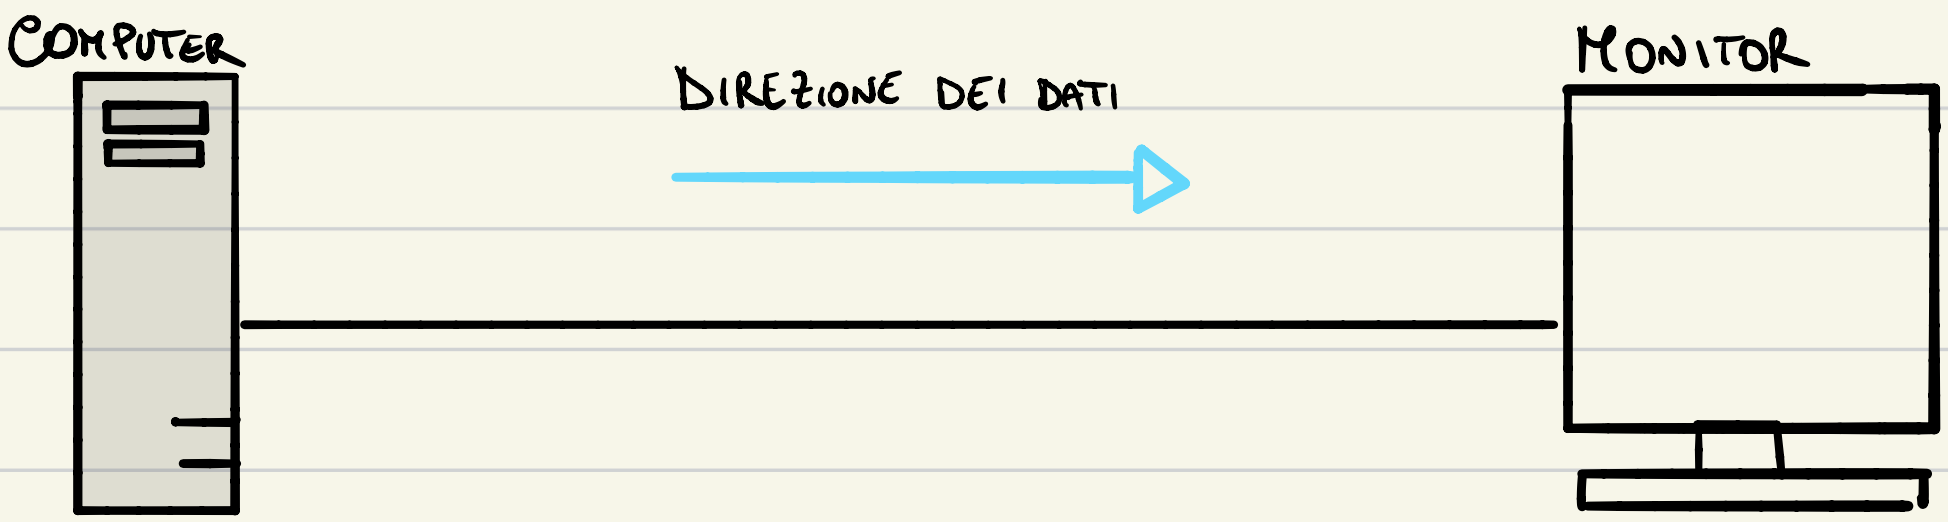 COMPUTER
DIREZIONE DEI DATI
MONITOR